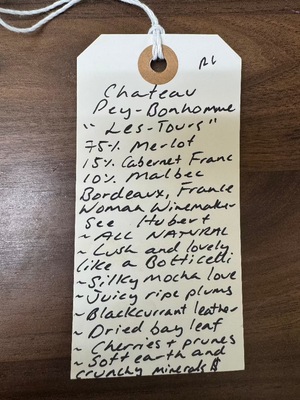 RL
Chateau
Pey-Bonhomme
"Les-Tours"
75% Merlot
15% Cabernet Franc
10% Malbec
Bordeaux, France
Woman Winemaker
See Hubert
~ ALL NATURAL
~ Lush and lovely
like a Botticelli
~ Silky Mocha love
~ Juicy ripe plums
~ Blackcurrant leather
~ Dried bay leaf
~ Cherries + prunes
~ Soft earth and
crunchy minerals